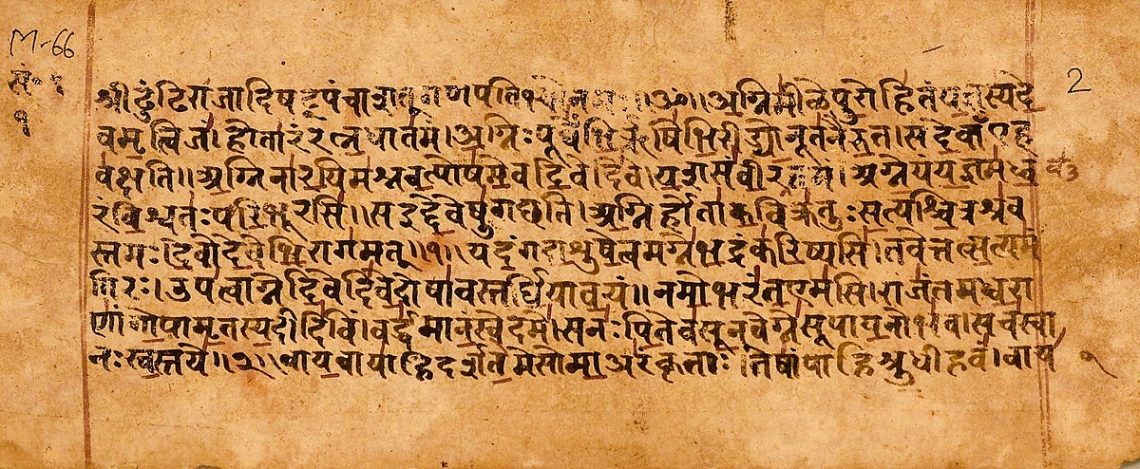 M-66
2
श्री ढुंढिराजादिषट्पंचाशतुगणपतिभ्योनमः॥ॐ॥अग्निमीळेपुरोहितंयज्ञस्यदे
वमृत्विजं।होतारंरत्नधातमं।अग्निःपूर्वेभिर्ऋषिभिरीड्योनूतनैरुत।सदेवाँएह
वक्षति॥अग्निनारयिमश्नवत्पोषमेवदिवेदिवे।यशसंवीरवत्तमं।अग्नेयंयज्ञमध्व
रंविश्वतःपरिभूरसि।सइद्देवेषुगछति।अग्निर्होताकविक्रतुःसत्यश्चित्रश्रव
स्तमः।देवोदेवेभिरागमत्॥१॥यदंगदाशुषेत्वमग्नेभद्रंकरिष्यसि।तवेत्तत्सत्यमं
गिरः।उपत्वाग्नेदिवेदिवेदोषावस्तर्धियावयं॥नमोभरंतएमसि।राजंतमध्वरा
णांगोपामृतस्यदीदिविं।वर्द्धमानंस्वेदमे।सनःपितेवसूनवेग्नेसूपायनोभव।सचस्वा
नःस्वस्तये॥२॥वायवायाहिदर्शतेमेसोमाअरंकृताः।तेषांपाहिश्रुधीहवं।वाय